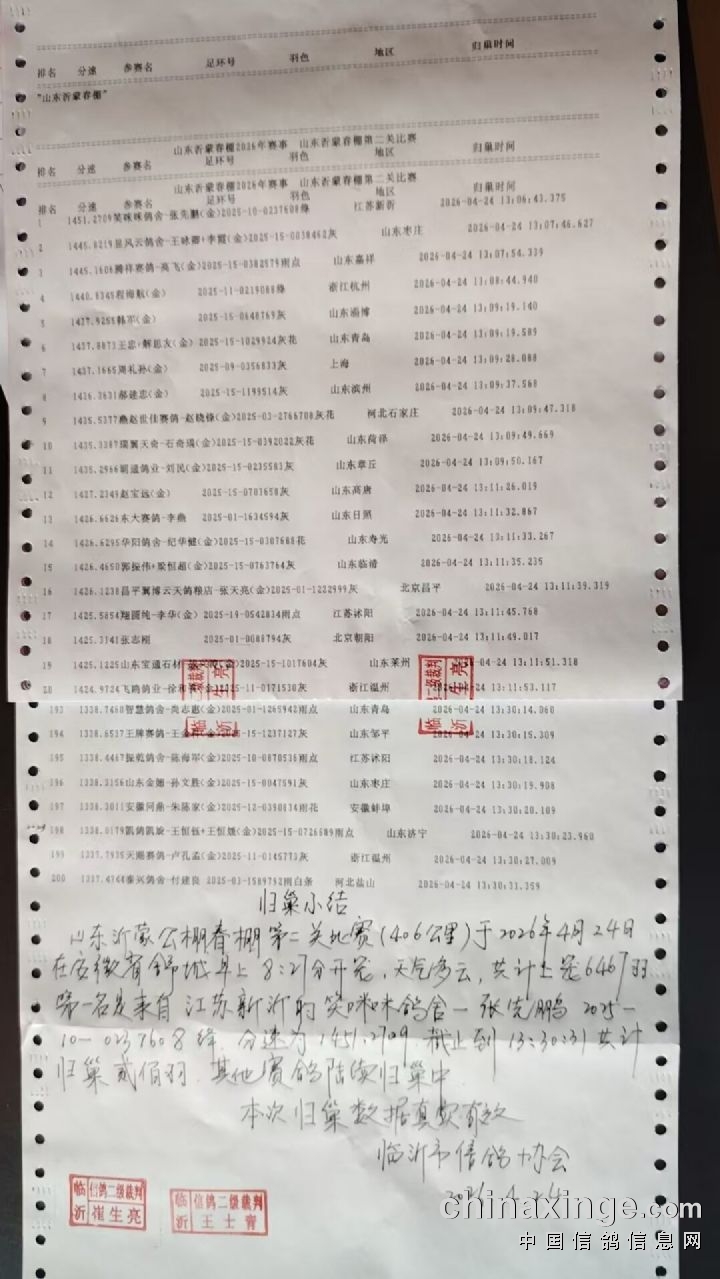 排名 分速 参赛名 足环号 羽色 地区 归巢时间
"山东沂蒙春棚"
山东沂蒙春棚2026年赛事 山东沂蒙春棚第二关比赛
排名 分速 参赛名 足环号 羽色 地区 归巢时间
山东沂蒙春棚2026年赛事 山东沂蒙春棚第二关比赛
排名 分速 参赛名 足环号 羽色 地区 归巢时间
1 1451.2709笑咪咪鸽舍-张先鹏(金)2025-10-0237608绛 江苏新沂 2026-04-24 13:06:43.375
2 2025-15-0038462灰 山东枣庄 2026-04-24 13:07:46.627
3 1445.1606腾祥赛鸽-英飞(金)2025-15-0382579雨点 山东嘉祥 2026-04-24 13:07:54.339
4 1440.8345程海航(金) 2025-11-0219088绛 浙江杭州 2026-04-24 13:08:44.940
5 1437.9255韩军(金) 2025-15-0648769灰 山东淄博 2026-04-24 13:09:19.140
6 1437.8873王忠+解思友(金)2025-15-1029924灰花 山东青岛 2026-04-24 13:09:19.589
7 1437.1665周礼孙(金) 2025-09-0356833灰 上海 2026-04-24 13:09:28.088
8 1436.3631郝建忠(金) 2025-15-1199514灰 山东滨州 2026-04-24 13:09:37.568
9 1435.5377燕赵世佳赛鸽-赵晓锋(金)2025-03-2766708灰花 河北石家庄 2026-04-24 13:09:47.318
10 1435.3387瑞翼天奇-石奇瑞(金)2025-15-0392022灰花 山东菏泽 2026-04-24 13:09:49.669
11 1435.2966明道鸽业-刘民(金)2025-15-0235583灰 山东章丘 2026-04-24 13:09:50.167
12 1427.2349赵宝远(金) 2025-15-0703658灰 山东高唐 2026-04-24 13:11:26.019
13 1426.6626东大赛鸽-李燕 2025-01-1634594灰 山东日照 2026-04-24 13:11:32.867
14 1426.6295华阳鸽舍-纪华健(金)2025-15-0307688花 山东寿光 2026-04-24 13:11:33.267
15 1426.4650郭振伟+梁恒超(金)2025-15-0763764灰 山东临清 2026-04-24 13:11:35.235
16 1426.1238昌平翼博云天鸽粮店-张天亮(金)2025-01-1222999灰 北京昌平 2026-04-24 13:11:39.319
17 1425.5854翔圆纯-李华(金) 2025-19-0542834雨点 江苏沭阳 2026-04-24 13:11:45.768
18 1425.3141张志刚 2025-01-0088794灰 北京朝阳 2026-04-24 13:11:49.017
19 1425.1225山东宝通石材 2025-15-1017604灰 山东莱州 2026-04-24 13:11:51.318
20 1424.9724飞鸣鸽业-徐 2025-11-0171530灰 浙江温州 2026-04-24 13:11:53.117
193 1338.7460智慧鸽舍-尚志惠(金)2025-01-1265942雨点 山东青岛 2026-04-24 13:30:14.060
194 1338.6537王牌赛鸽-王 2025-15-1237127灰 山东邹平 2026-04-24 13:30:15.309
195 1338.4467振乾鸽舍-陈海军(金)2025-10-0870536雨点 江苏沭阳 2026-04-24 13:30:18.124
196 1338.3156山东金翅-孙文胜(金)2025-15-0047591灰 山东枣庄 2026-04-24 13:30:19.908
197 1338.3011安徽同鼎-朱陈家(金)2025-12-0390834雨花 安徽蚌埠 2026-04-24 13:30:20.109
198 1338.0179凯鸽凯旋-王恒钰+王恒媛(金)2025-15-0726689雨点 山东济宁 2026-04-24 13:30:23.960
199 1337.7935天湖赛鸽-卢孔孟(金)2025-11-0145773灰 浙江温州 2026-04-24 13:30:27.009
200 1337.4764泰兴鸽舍-付建良 2025-03-1589792雨白条 河北盐山 2026-04-24 13:30:31.359
临沂 信鸽二级裁判 崔生亮
归巢小结
山东沂蒙公棚春棚第二关比赛(406公里)于2026年4月24日
在安徽省舒城早上8:27分开笼,天气多云,共计上笼6467羽
第一名是来自江苏新沂的笑咪咪鸽舍-张先鹏2025-
10-0237608绛,分速为1451.2709,截止到13:30:31共计
归巢贰佰羽,其他赛鸽陆续归巢中
本次归巢数据真实有效
临沂市信鸽协会
2026.4.24
临沂 信鸽二级裁判 崔生亮
临沂 信鸽二级裁判 王士青
chinaxinge.com
中国信鸽信息网